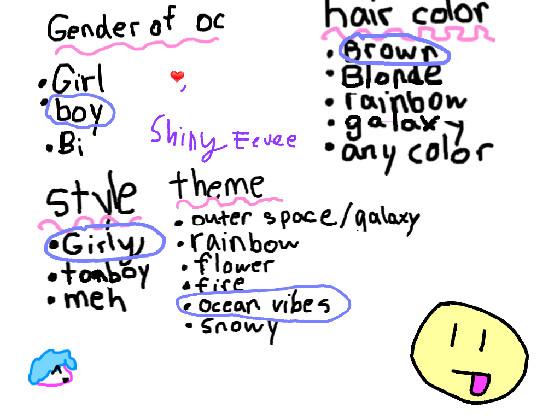 Gender of OC
• Girl
• boy
• Bi
Shiny Eevee
hair color
• Brown
• Blonde
• rainbow
• galaxy
• any color
style
• Girly
• tomboy
• meh
theme
• outer space/galaxy
• rainbow
• flower
• fire
• ocean vibes
• snowy